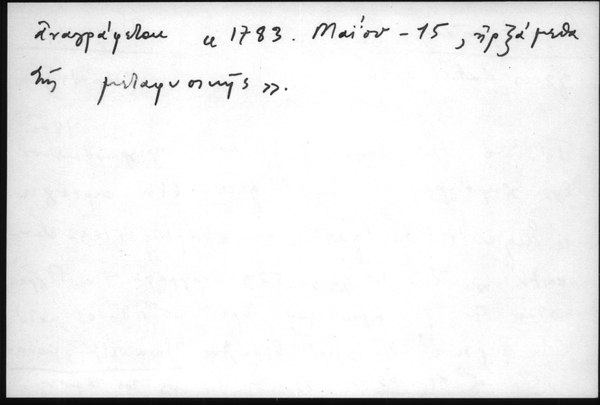 ἀναγράφεται « 1783. Μαΐου - 15, ἠρξάμεθα
τῆς μεταφυσικῆς ».